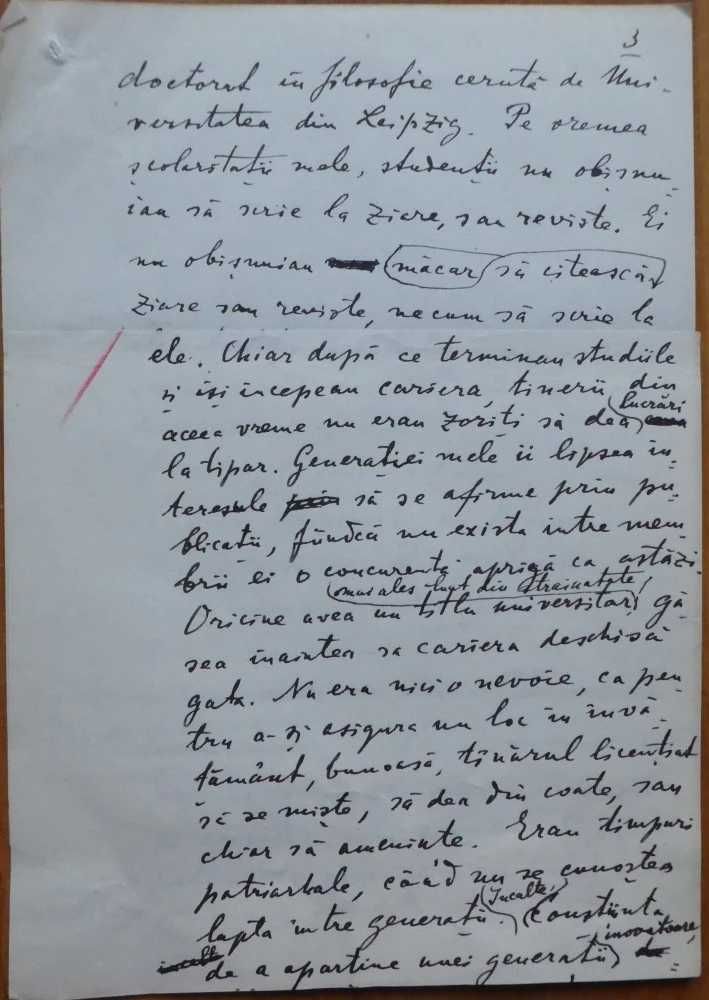 3
doctorat în filosofie cerută de Uni-
versitatea din Leipzig. Pe vremea
școlarității mele, studenții nu obișnu-
iau să scrie la ziare, sau reviste. Ei
nu obișnuiau măcar să citească
ziare sau reviste, necum să scrie la
ele. Chiar după ce terminau studiile
și își începeau cariera, tinerii din
aceea vreme nu erau zoriți să dea lucrări
la tipar. Generației mele îi lipsea in-
teresul să se afirme prin pu-
blicații, fiindcă nu exista între mem-
brii ei o concurență aprigă ca astăzi.
Oricine avea un titlu universitar, mai ales luat din străinătate, gă-
sea înaintea sa cariera deschisă
gata. Nu era nici o nevoie, ca pen-
tru a-și asigura un loc în învă-
țământ, bunoasă, tînărul licențiat
să se miște, să dea din coate, sau
chiar să amenințe. Erau timpuri
patriarhale, când nu se cunoștea
lupta între generații. Încalte, conștiința
de a aparține unei generații inovatoare,